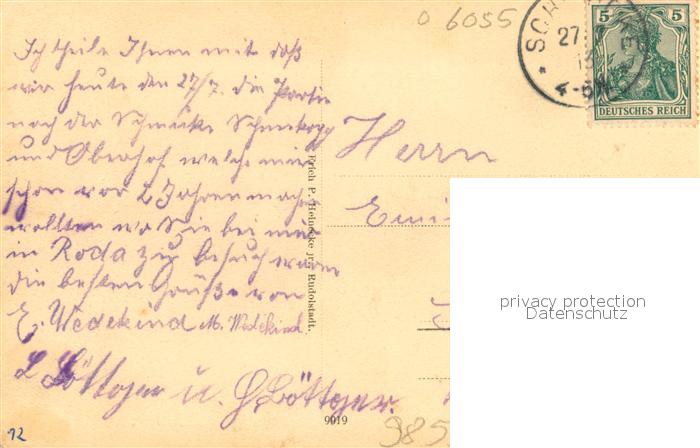 o 6055
SCH
27.
13
4-5N.
5 5
DEUTSCHES REICH
Ich theile Ihnen mit daß
wir heute den 27/7. die Partie
nach der Schmücke Schneekopf
und Oberhof welche wir
schon vor 2 Jahren machen
wollten wo Sie bei mir
in Roda zu besuch waren
die besten Grüße von
E. Wedekind M. Wedekind
L Böttger u. G Böttger.
Herrn
Emi
Erich P. Heinecke jr., Rudolstadt.
9919
985
12
privacy protection
Datenschutz